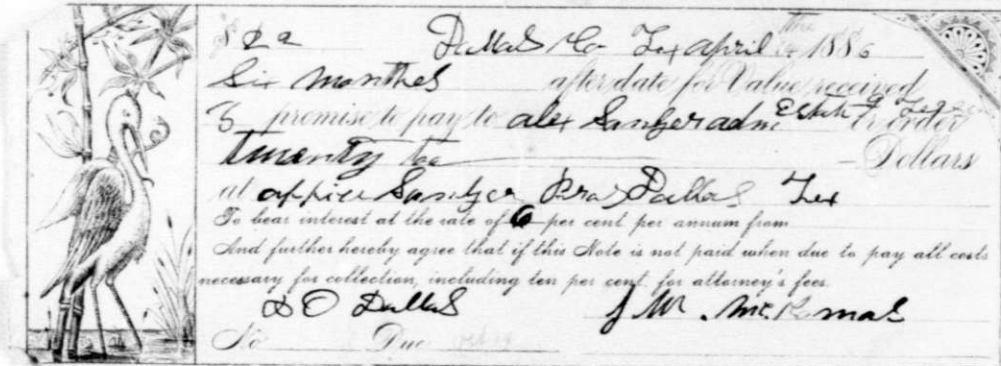 $22 Dallas Co Tex April 1886
Six monthes after date for Value received
I promise to pay to alex Sanger adm Estate or order
Twenty two Dollars
at office Sanger Bros Dallas Tex
To bear interest at the rate of 6 per cent per annum from
And further hereby agree that if this Note is not paid when due to pay all costs
necessary for collection, including ten per cent. for attorney's fees.
P O Dallas J M.
No Due